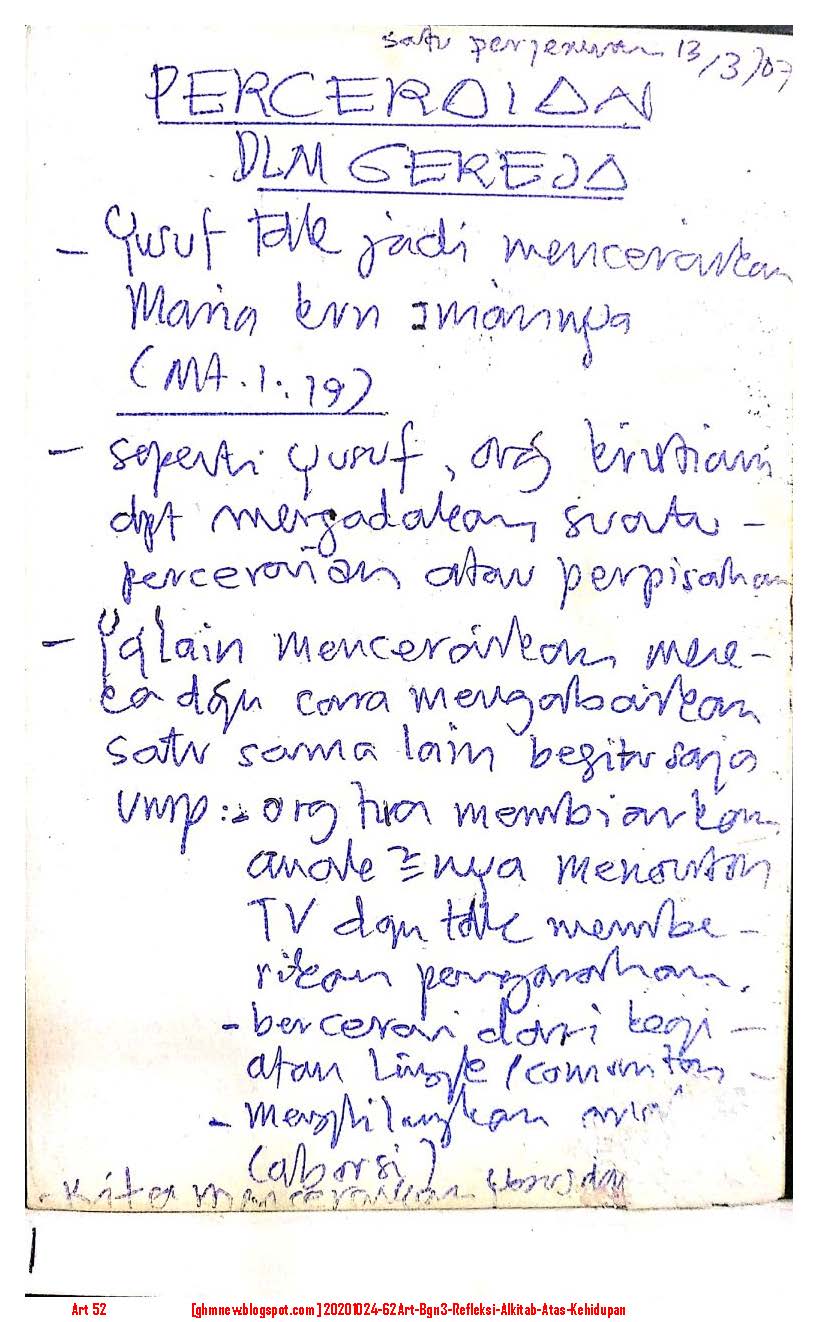 satu perjanjian 13/3/07
PERCERAIAN
DLM GEREJA
- Yusuf tdk jadi menceraikan
Maria krn imannya
(Mt. 1:19)
- seperti Yusuf, org kristiani
dpt mengadakan suatu -
perceraian atau perpisahan
- Yg lain menceraikan mere-
ka dgn cara mengabaikan
satu sama lain begitu saja
ump :- org tua membiarkan
anak ²nya menonton
TV dgn tdk membe-
rikan pengarahan.
- bercerai dari kegi-
atan Lingk/comunitas -
- menghilangkan
(aborsi)
- Kita menceraikan
Art 52 [ghmnew.blogspot.com] 20201024-62Art-Bgn3-Refleksi-Alkitab-Atas-Kehidupan